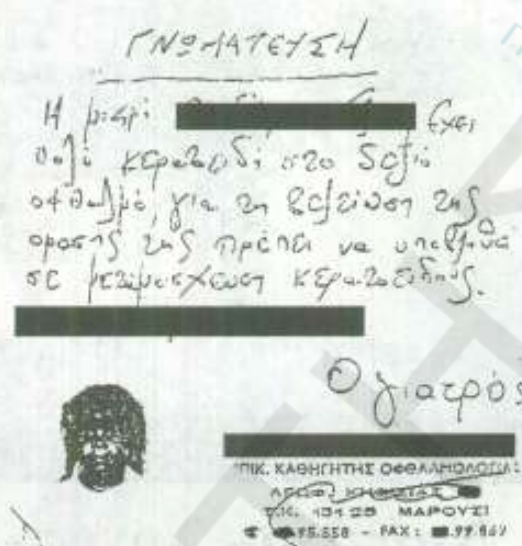 ΓΝΩΜΑΤΕΥΣΗ
Η μικρή έχει
θολό κερατοειδή στο δεξιό
οφθαλμό, για τη βελτίωση της
όρασής της πρέπει να υποβληθεί
σε μεταμόσχευση κερατοειδούς.
Ο γιατρός
ΕΠΙΚ. ΚΑΘΗΓΗΤΗΣ ΟΦΘΑΛΜΟΛΟΓΙΑΣ
ΛΕΩΦ. ΚΗΦΙΣΙΑΣ
Τ.Κ. 151 25 ΜΑΡΟΥΣΙ
95.558 - FAX: